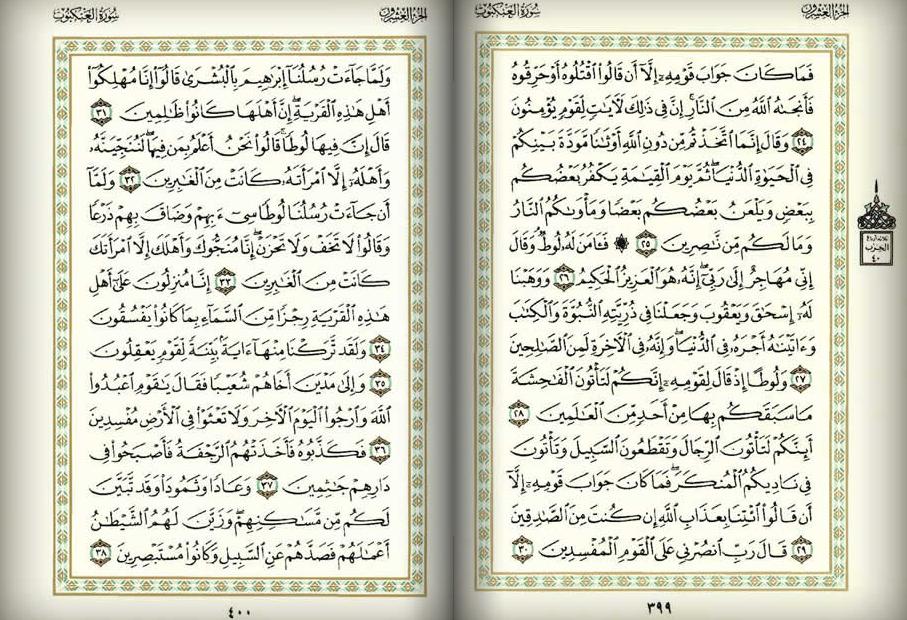 سورة العنكبوت
الجزء العشرون
فَمَا كَانَ جَوَابَ قَوْمِهِۦٓ إِلَّآ أَن قَالُوا۟ ٱقْتُلُوهُ أَوْ حَرِّقُوهُ
فَأَنجَىٰهُ ٱللَّهُ مِنَ ٱلنَّارِ ۚ إِنَّ فِى ذَٰلِكَ لَـَٔايَـٰتٍ لِّقَوْمٍ يُؤْمِنُونَ
٢٤ وَقَالَ إِنَّمَا ٱتَّخَذْتُم مِّن دُونِ ٱللَّهِ أَوْثَـٰنًا مَّوَدَّةَ بَيْنِكُمْ
فِى ٱلْحَيَوٰةِ ٱلدُّنْيَا ۖ ثُمَّ يَوْمَ ٱلْقِيَـٰمَةِ يَكْفُرُ بَعْضُكُم
بِبَعْضٍ وَيَلْعَنُ بَعْضُكُم بَعْضًا وَمَأْوَىٰكُمُ ٱلنَّارُ
وَمَا لَكُم مِّن نَّـٰصِرِينَ ٢٥ ۞ فَـَٔامَنَ لَهُۥ لُوطٌ ۘ وَقَالَ
إِنِّى مُهَاجِرٌ إِلَىٰ رَبِّىٓ ۖ إِنَّهُۥ هُوَ ٱلْعَزِيزُ ٱلْحَكِيمُ ٢٦ وَوَهَبْنَا
لَهُۥٓ إِسْحَـٰقَ وَيَعْقُوبَ وَجَعَلْنَا فِى ذُرِّيَّتِهِ ٱلنُّبُوَّةَ وَٱلْكِتَـٰبَ
وَءَاتَيْنَـٰهُ أَجْرَهُۥ فِى ٱلدُّنْيَا ۖ وَإِنَّهُۥ فِى ٱلْـَٔاخِرَةِ لَمِنَ ٱلصَّـٰلِحِينَ
٢٧ وَلُوطًا إِذْ قَالَ لِقَوْمِهِۦٓ إِنَّكُمْ لَتَأْتُونَ ٱلْفَـٰحِشَةَ
مَا سَبَقَكُم بِهَا مِنْ أَحَدٍ مِّنَ ٱلْعَـٰلَمِينَ ٢٨
أَئِنَّكُمْ لَتَأْتُونَ ٱلرِّجَالَ وَتَقْطَعُونَ ٱلسَّبِيلَ وَتَأْتُونَ
فِى نَادِيكُمُ ٱلْمُنكَرَ ۖ فَمَا كَانَ جَوَابَ قَوْمِهِۦٓ إِلَّآ
أَن قَالُوا۟ ٱئْتِنَا بِعَذَابِ ٱللَّهِ إِن كُنتَ مِنَ ٱلصَّـٰدِقِينَ
٢٩ قَالَ رَبِّ ٱنصُرْنِى عَلَى ٱلْقَوْمِ ٱلْمُفْسِدِينَ ٣٠
٣٩٩
الحزب
٤٠
سورة العنكبوت
الجزء العشرون
وَلَمَّا جَآءَتْ رُسُلُنَآ إِبْرَٰهِيمَ بِٱلْبُشْرَىٰ قَالُوٓا۟ إِنَّا مُهْلِكُوٓا۟
أَهْلِ هَـٰذِهِ ٱلْقَرْيَةِ ۖ إِنَّ أَهْلَهَا كَانُوا۟ ظَـٰلِمِينَ ٣١
قَالَ إِنَّ فِيهَا لُوطًا ۚ قَالُوا۟ نَحْنُ أَعْلَمُ بِمَن فِيهَا ۖ لَنُنَجِّيَنَّهُۥ
وَأَهْلَهُۥٓ إِلَّا ٱمْرَأَتَهُۥ كَانَتْ مِنَ ٱلْغَـٰبِرِينَ ٣٢ وَلَمَّآ
أَن جَآءَتْ رُسُلُنَا لُوطًا سِىٓءَ بِهِمْ وَضَاقَ بِهِمْ ذَرْعًا
وَقَالُوا۟ لَا تَخَفْ وَلَا تَحْزَنْ ۖ إِنَّا مُنَجُّوكَ وَأَهْلَكَ إِلَّا ٱمْرَأَتَكَ
كَانَتْ مِنَ ٱلْغَـٰبِرِينَ ٣٣ إِنَّا مُنزِلُونَ عَلَىٰٓ أَهْلِ
هَـٰذِهِ ٱلْقَرْيَةِ رِجْزًا مِّنَ ٱلسَّمَآءِ بِمَا كَانُوا۟ يَفْسُقُونَ
٣٤ وَلَقَد تَّرَكْنَا مِنْهَآ ءَايَةًۢ بَيِّنَةً لِّقَوْمٍ يَعْقِلُونَ
٣٥ وَإِلَىٰ مَدْيَنَ أَخَاهُمْ شُعَيْبًا فَقَالَ يَـٰقَوْمِ ٱعْبُدُوا۟
ٱللَّهَ وَٱرْجُوا۟ ٱلْيَوْمَ ٱلْـَٔاخِرَ وَلَا تَعْثَوْا۟ فِى ٱلْأَرْضِ مُفْسِدِينَ
٣٦ فَكَذَّبُوهُ فَأَخَذَتْهُمُ ٱلرَّجْفَةُ فَأَصْبَحُوا۟ فِى
دَارِهِمْ جَـٰثِمِينَ ٣٧ وَعَادًا وَثَمُودَا۟ وَقَد تَّبَيَّنَ
لَكُم مِّن مَّسَـٰكِنِهِمْ ۖ وَزَيَّنَ لَهُمُ ٱلشَّيْطَـٰنُ
أَعْمَـٰلَهُمْ فَصَدَّهُمْ عَنِ ٱلسَّبِيلِ وَكَانُوا۟ مُسْتَبْصِرِينَ ٣٨
٤٠٠